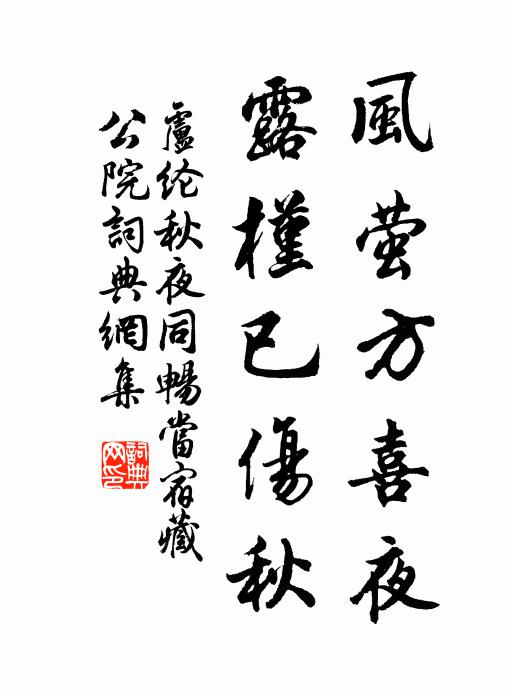 風萤方喜夜
露槿已傷秋
盧纶秋夜同暢當宿藏
公院詞典網集
詞典网印